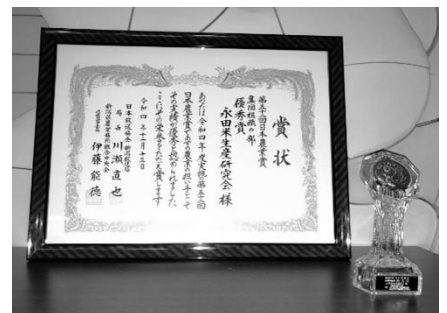 賞状
第五十二回日本農業賞
集団組織の部
優秀賞
永田米生産研究会様
あなたは令和四年度実施の第五十二回
日本農業賞で日本の農業の担い手として
その実績が優秀と認められました
ここにその栄誉をたたえ賞します
令和四年十二月十三日
日本放送協会 新潟放送局
局長 川瀬直也
新潟県農業協同組合中央会
伊藤能徳